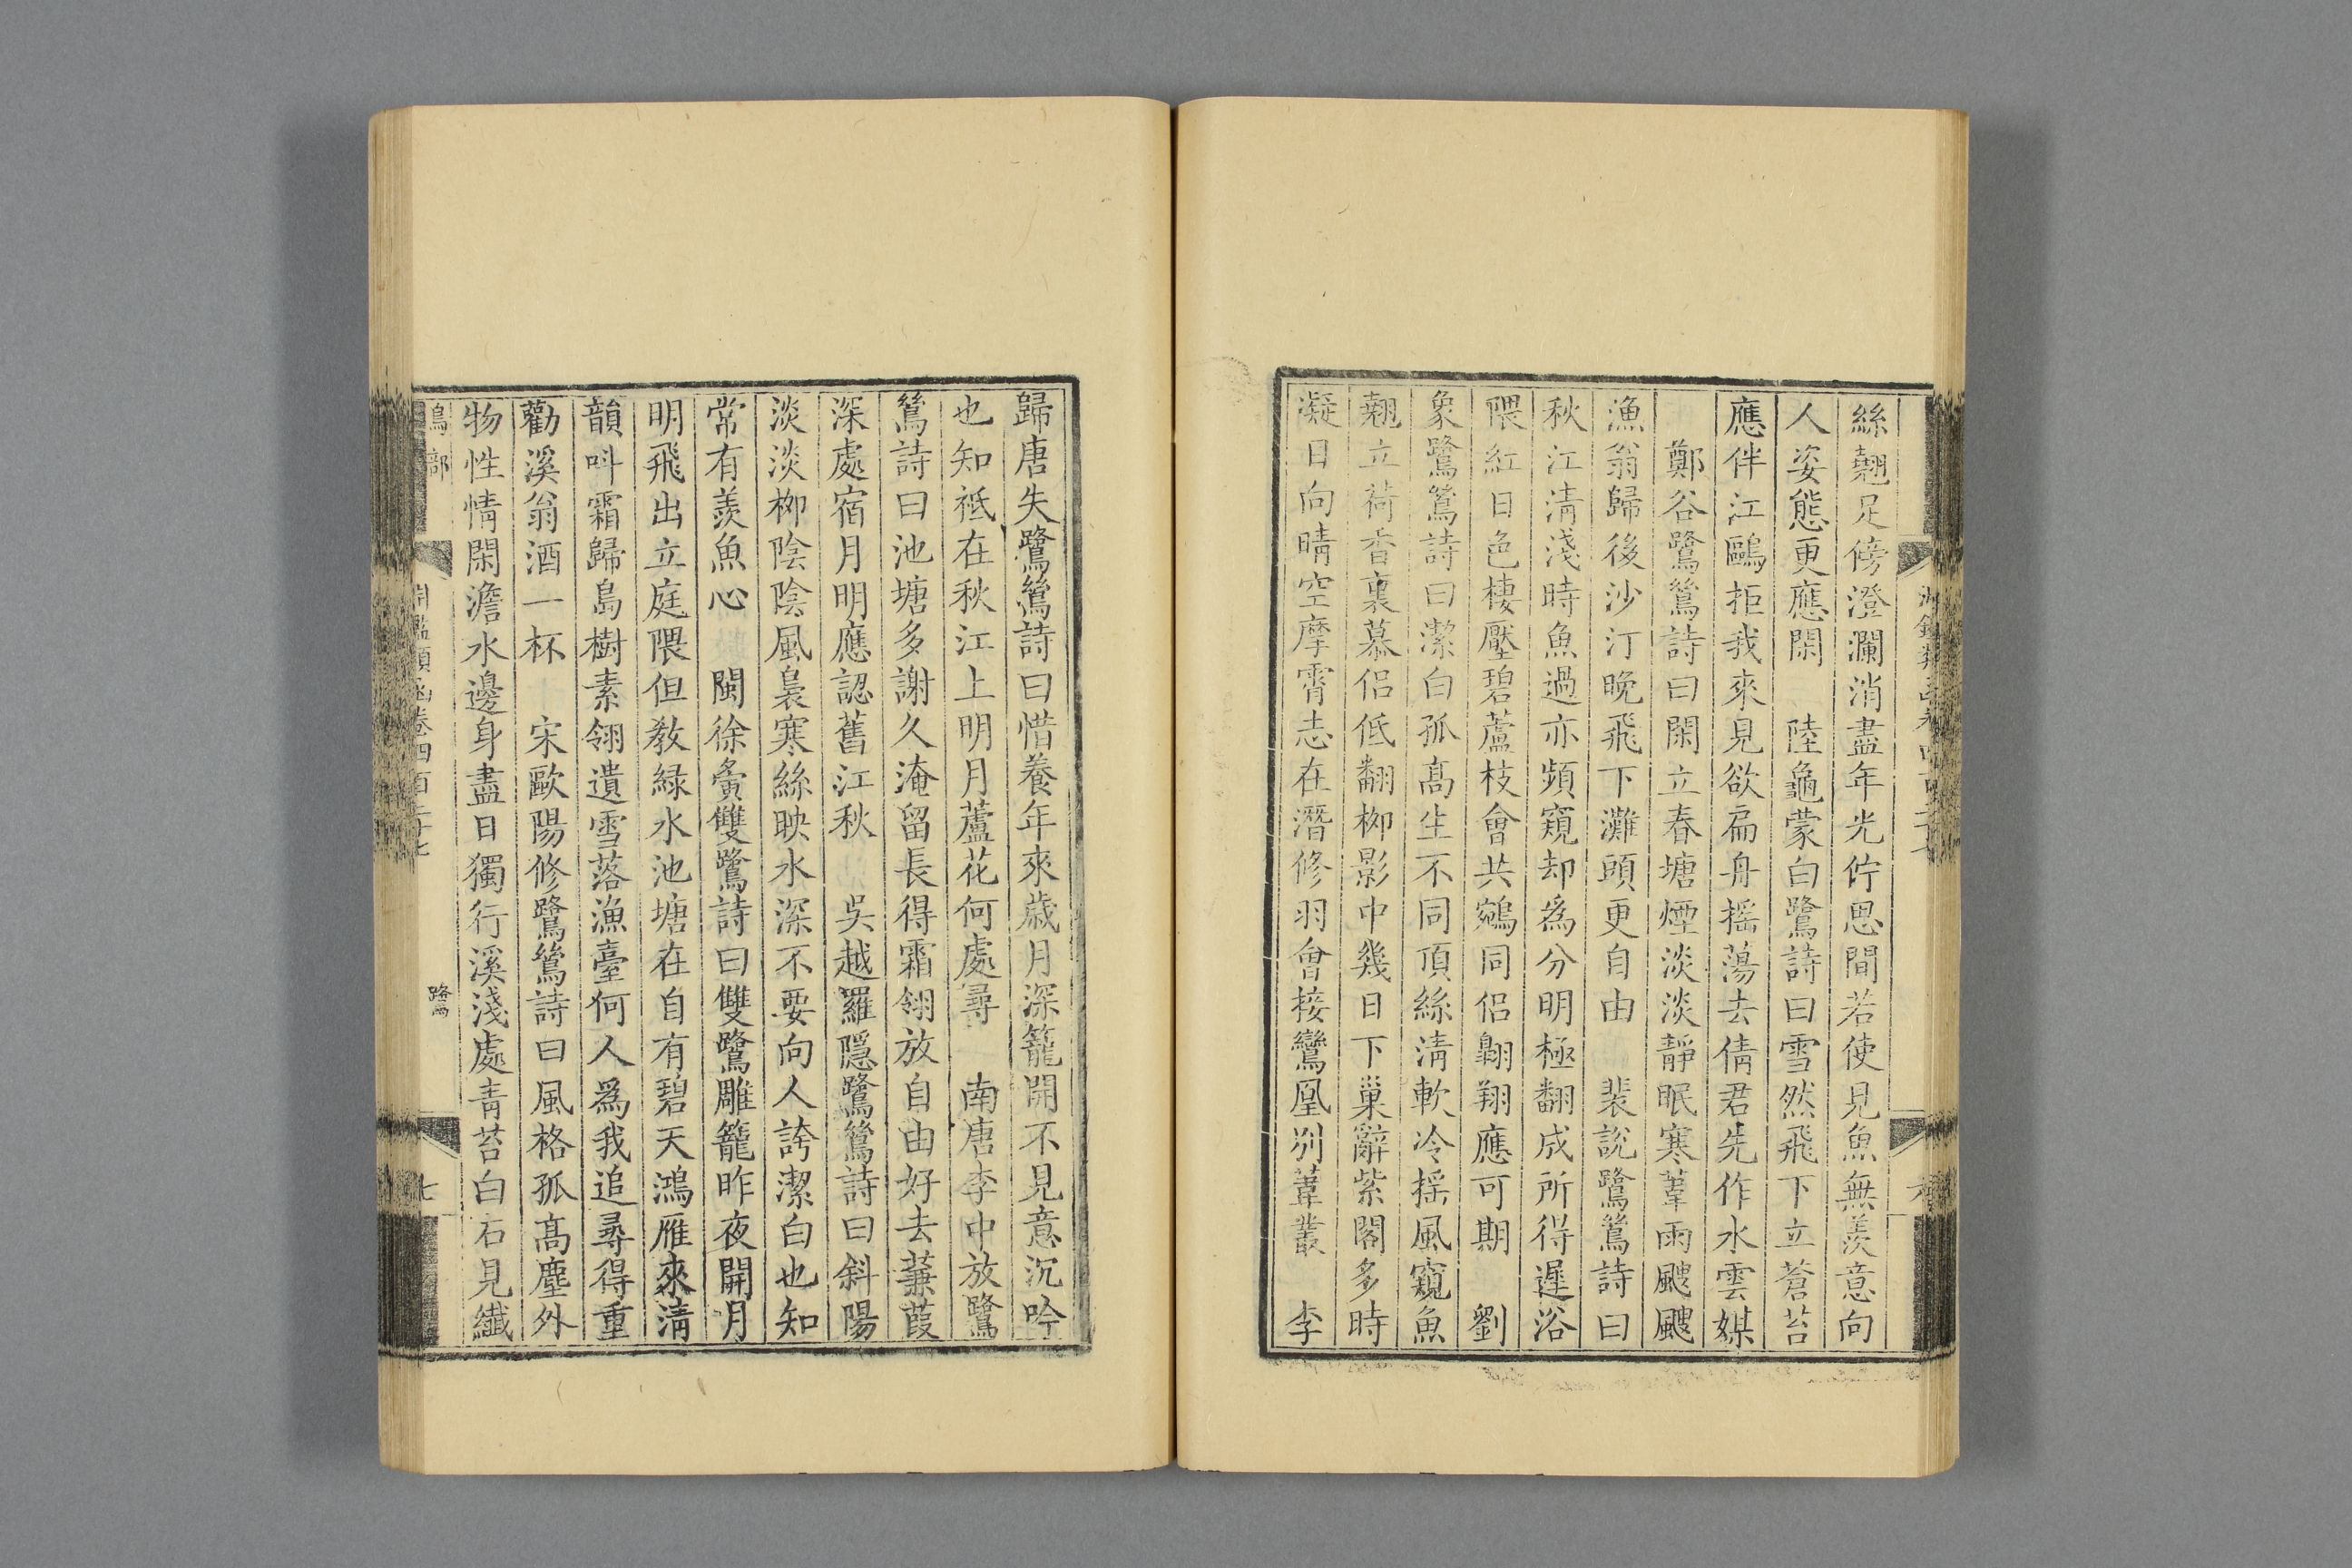 絲翹足傍澄瀾消盡年光佇思間若使見魚無羨意向
人姿態更應閑 陸龜蒙白鷺詩曰雪然飛下立蒼苔
應伴江鷗拒我來見欲扁舟摇蕩去倩君先作水雲媒
鄭谷鷺鷥詩曰閑立春塘煙淡淡靜眠寒葦雨颼颼
漁翁歸後沙汀晚飛下灘頭更自由 裴説鷺鷥詩曰
秋江清淺時魚過亦頻窺却為分明極翻成所得遲浴
隈紅日色棲壓碧蘆枝會共鵷同侣翺翔應可期 劉
象鷺鷥詩曰潔白孤髙生不同頂絲清軟冷摇風窺魚
翹立荷香裏慕侣低翻栁影中幾日下巢辭紫閣多時
凝日向晴空摩霄志在潛修羽會接鸞凰别葦叢 李
歸唐失鷺鷥詩曰惜養年來歲月深籠開不見意沉吟
也知祗在秋江上明月蘆花何處尋 南唐李中放鷺
鷥詩曰池塘多謝久淹留長得霜翎放自由好去蒹葭
深處宿月明應認舊江秋 吳越羅隱鷺鷥詩曰斜陽
淡淡栁陰陰風裊寒絲映水深不要向人誇潔白也知
常有羨魚心 閩徐夤雙鷺詩曰雙鷺雕籠昨夜開月
明飛出立庭隈但教緑水池塘在自有碧天鴻雁來清
韻叫霜歸島樹素翎遺雪落漁臺何人爲我追尋得重
勸溪翁酒一杯 宋歐陽修鷺鷥詩曰風格孤髙塵外
物性情閑澹水邊身盡日獨行溪淺處青苔白石見纖
鳥部
淵鑑類函卷四百二十七
鷺
七